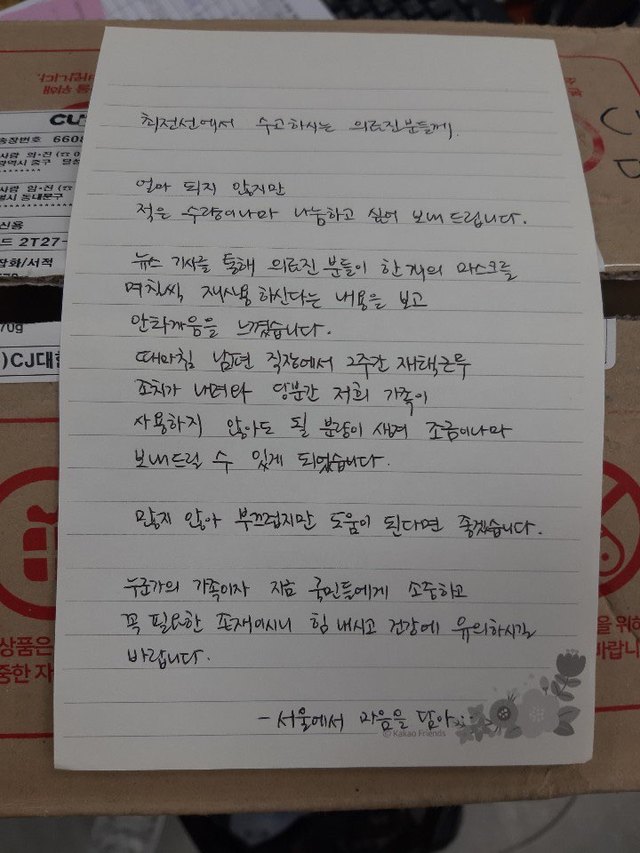 CU
송장번호 6608
신용
드 2T27-
잡화/서적
70g
)CJ대한
최전선에서 수고하시는 의료진분들께.
얼마 되지 않지만
적은 수량이나마 나눔하고 싶어 보내드립니다.
뉴스 기사를 통해 의료진 분들이 한개의 마스크를
며칠씩 재사용 하신다는 내용을 보고
안타까움을 느꼈습니다.
때마침 남편 직장에서 2주간 재택근무
조치가 내려와 당분간 저희 가족이
사용하지 않아도 될 분량이 생겨 조금이나마
보내드릴 수 있게 되었습니다.
많지 않아 부끄럽지만 도움이 된다면 좋겠습니다.
누군가의 가족이자 지금 국민들에게 소중하고
꼭 필요한 존재이시니 힘 내시고 건강에 유의하시길
바랍니다.
- 서울에서 마음을 담아...
© Kakao Friends
상품은
중한 자
을 위해
바랍니